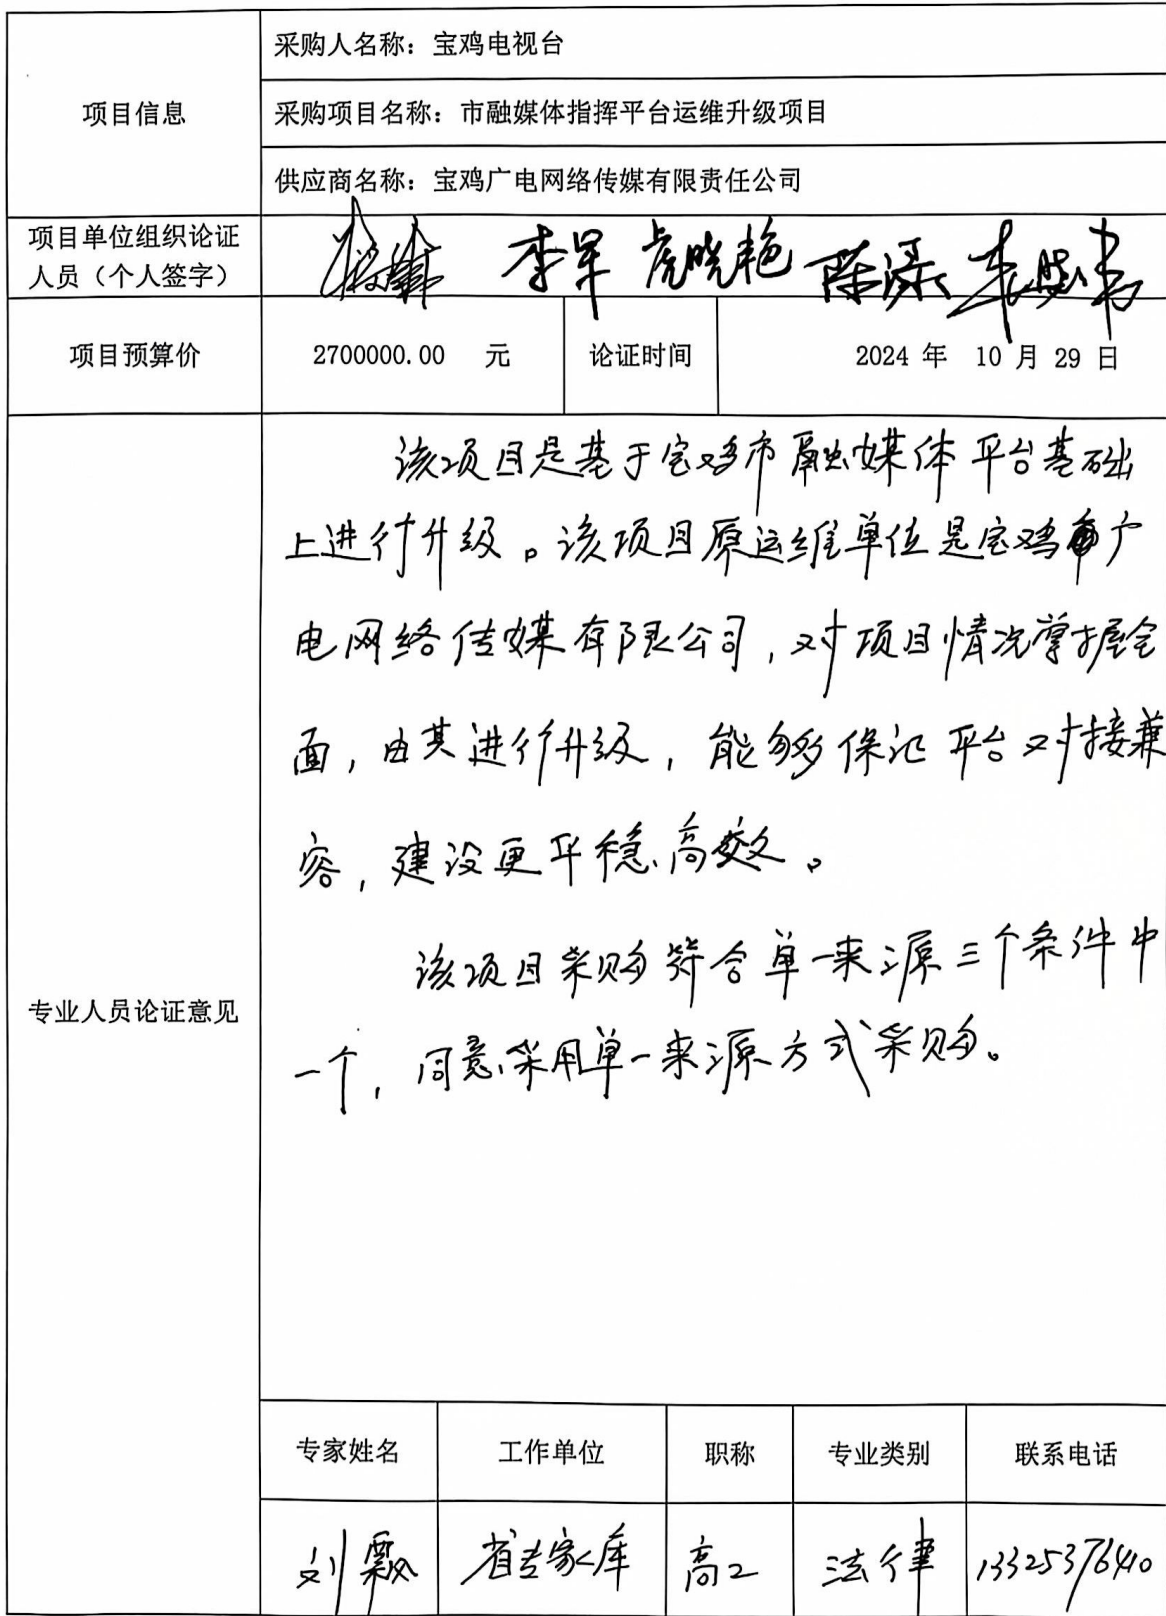 采购人名称：宝鸡电视台
项目信息
采购项目名称：市融媒体指挥平台运维升级项目
供应商名称：宝鸡广电网络传媒有限责任公司
项目单位组织论证
人员（个人签字）
李军 虎晓艳 陈瀑
项目预算价 2700000.00 元 论证时间 2024 年 10 月 29 日
该项目是基于宝鸡市融媒体平台基础
上进行升级。该项目原运维单位是宝鸡广
电网络传媒有限公司，对项目情况掌握全
面，由其进行升级，能够保证平台对接兼
容，建设更平稳高效。
该项目采购符合单一来源三个条件中
一个，同意采用单一来源方式采购。
专业人员论证意见
专家姓名 工作单位 职称 专业类别 联系电话
刘飘 省专家库 高工 法律 13325376410